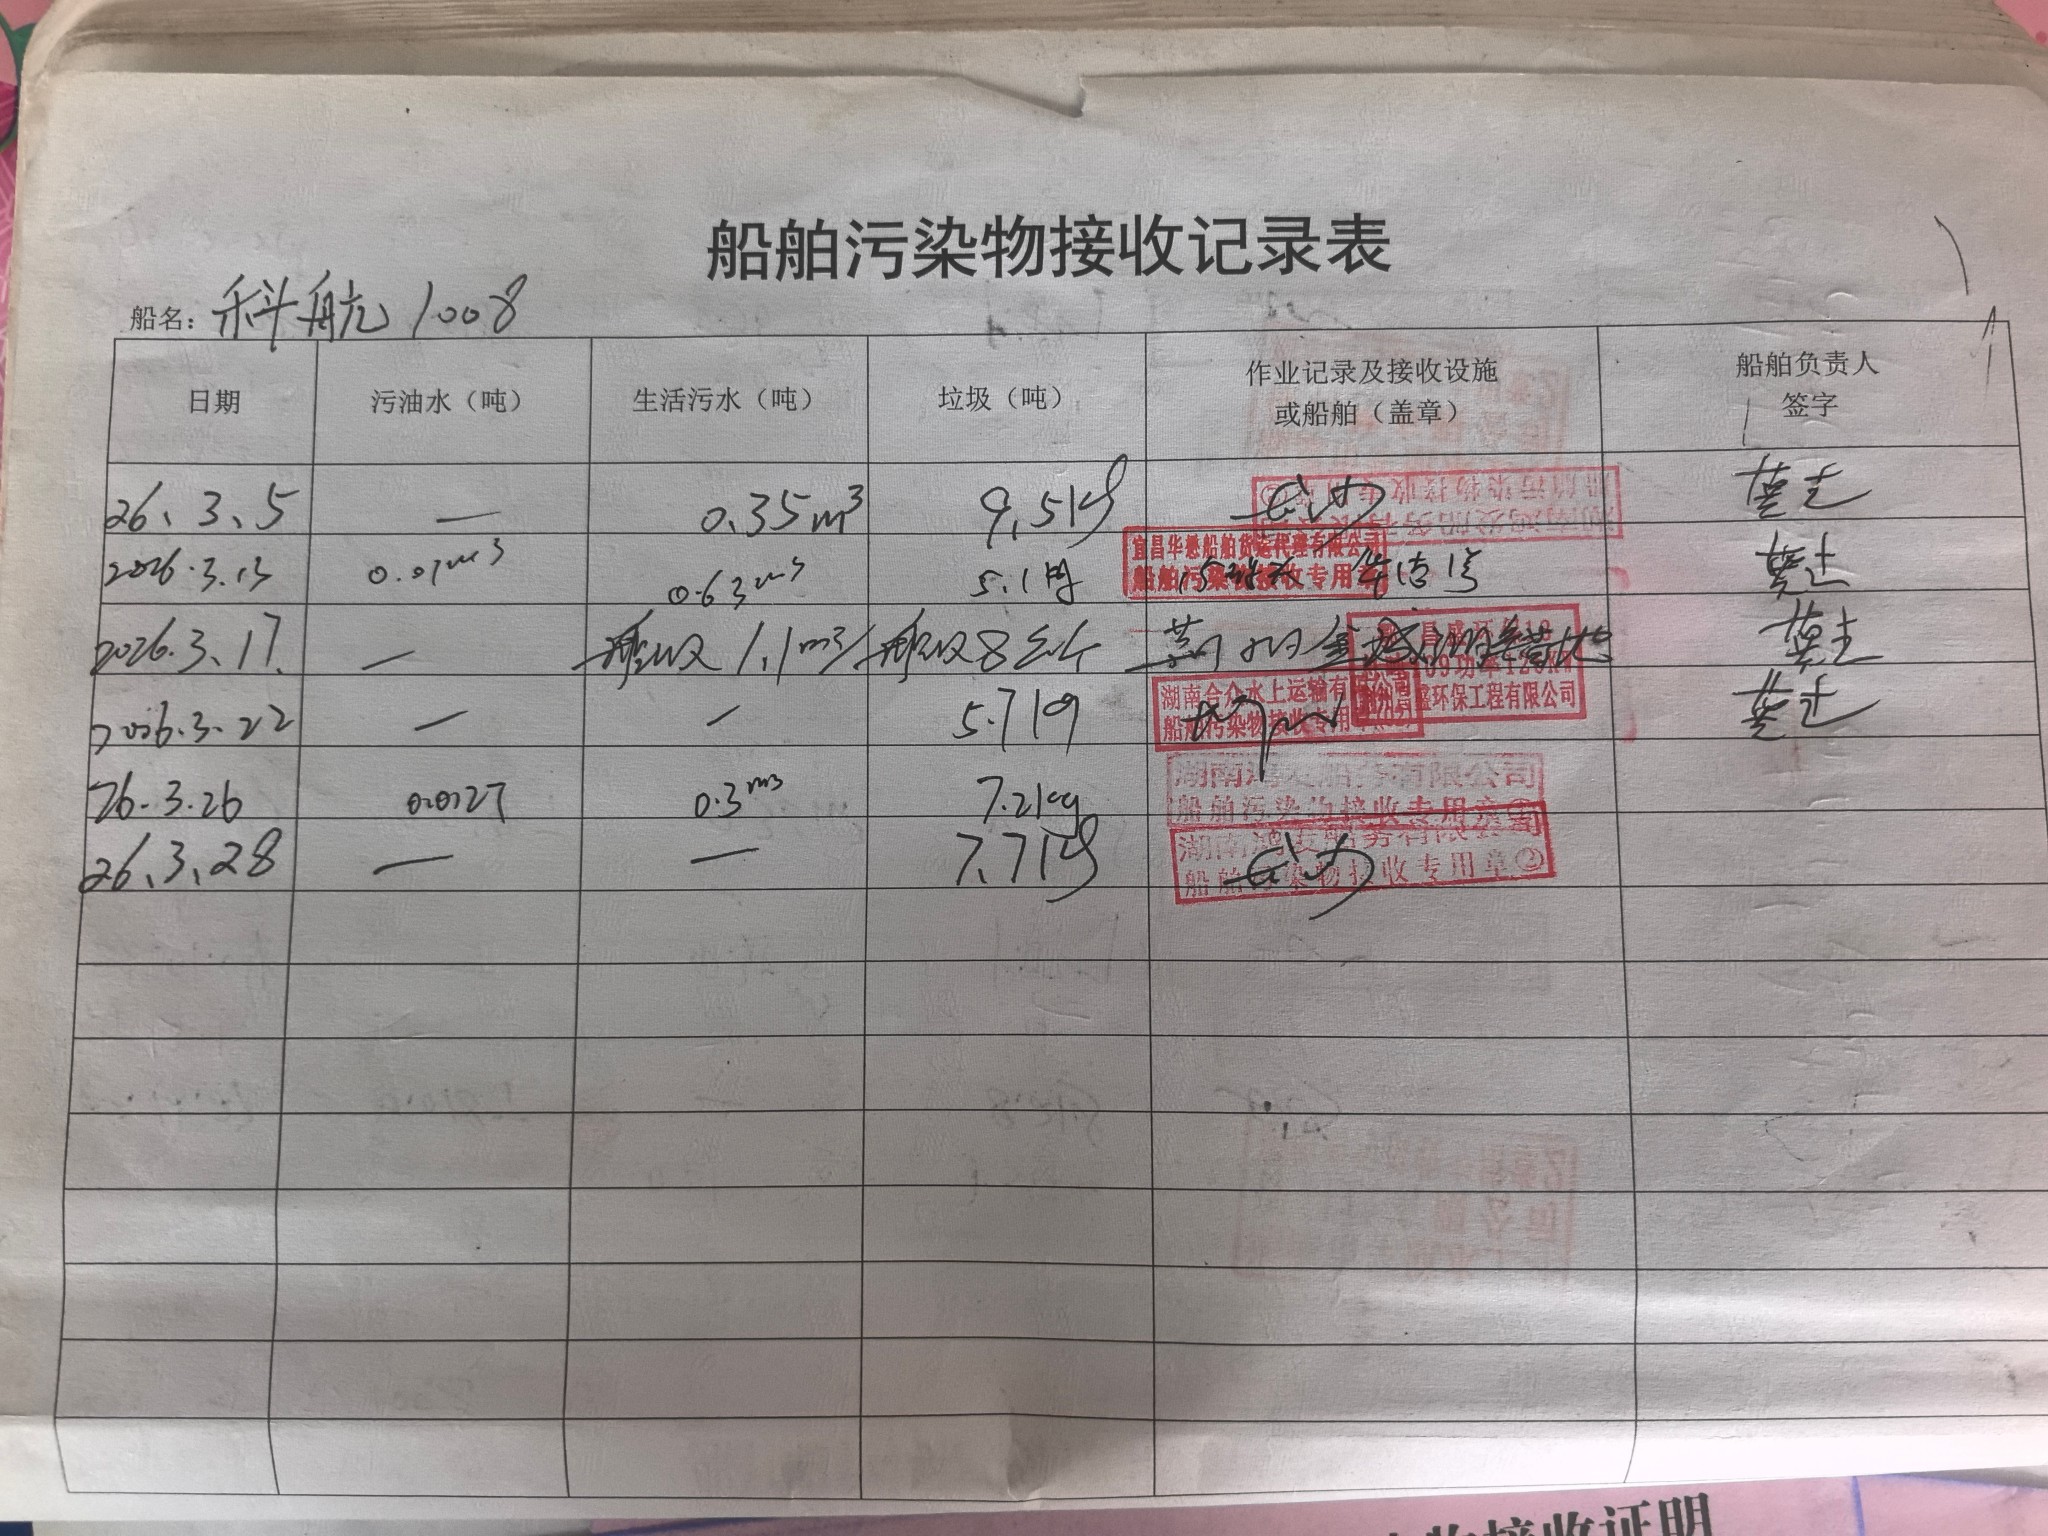 船舶污染物接收记录表
船名：科航1008
日期 污油水（吨） 生活污水（吨） 垃圾（吨） 作业记录及接收设施或船舶（盖章） 船舶负责人签字
26、3、5 — 0.35m³ 9.5kg
2026.3.13 0.01m³ 0.63m³ 5.1kg
宜昌华懋船舶货运代理有限公司
船舶污染物接收专用章
2026.3.17. — 接收1.1m³ 接收8公斤
昌盛环保
功率120KW
荆州昌盛环保工程有限公司
2026.3.22 — — 5.7kg
湖南合众水上运输有限公司
船舶污染物接收专用章
26.3.26 0.0027 0.3m³ 7.2kg
湖南鸿发船务有限公司
船舶污染物接收专用章②
26、3、28 — — 7.7kg
湖南鸿发船务有限公司
船舶污染物接收专用章②
物接收证明